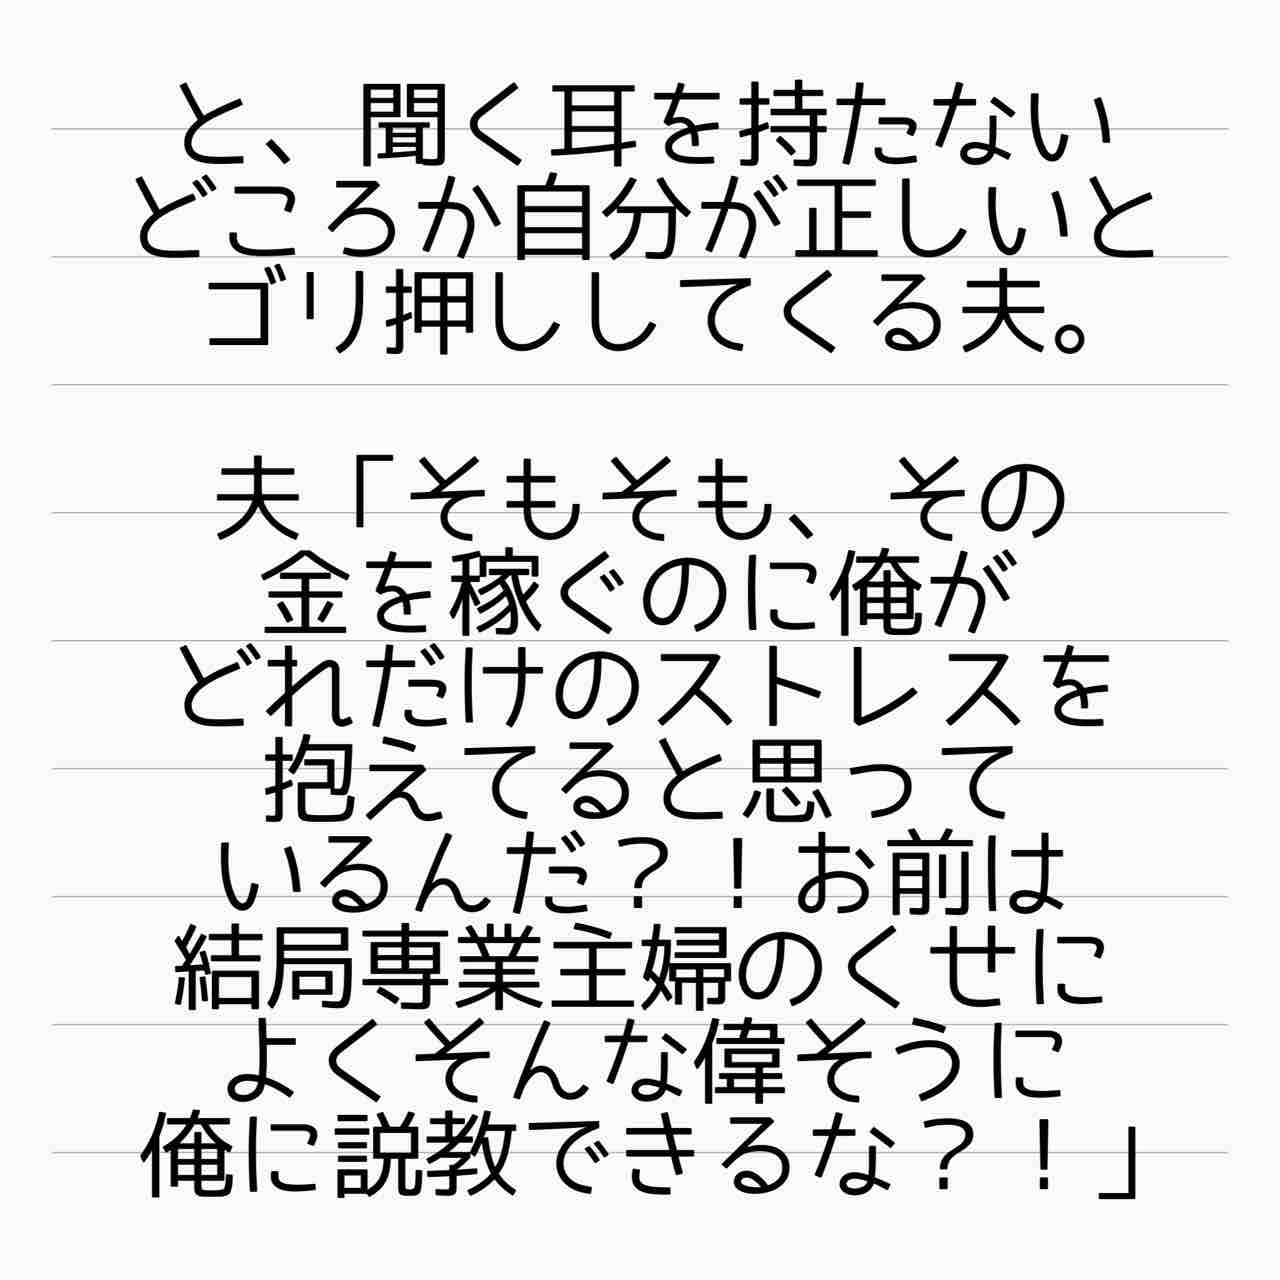 と、聞く耳を持たない
どころか自分が正しいと
ゴリ押ししてくる夫。
夫「そもそも、その
金を稼ぐのに俺が
どれだけのストレスを
抱えてると思って
いるんだ？！お前は
結局専業主婦のくせに
よくそんな偉そうに
俺に説教できるな？！」